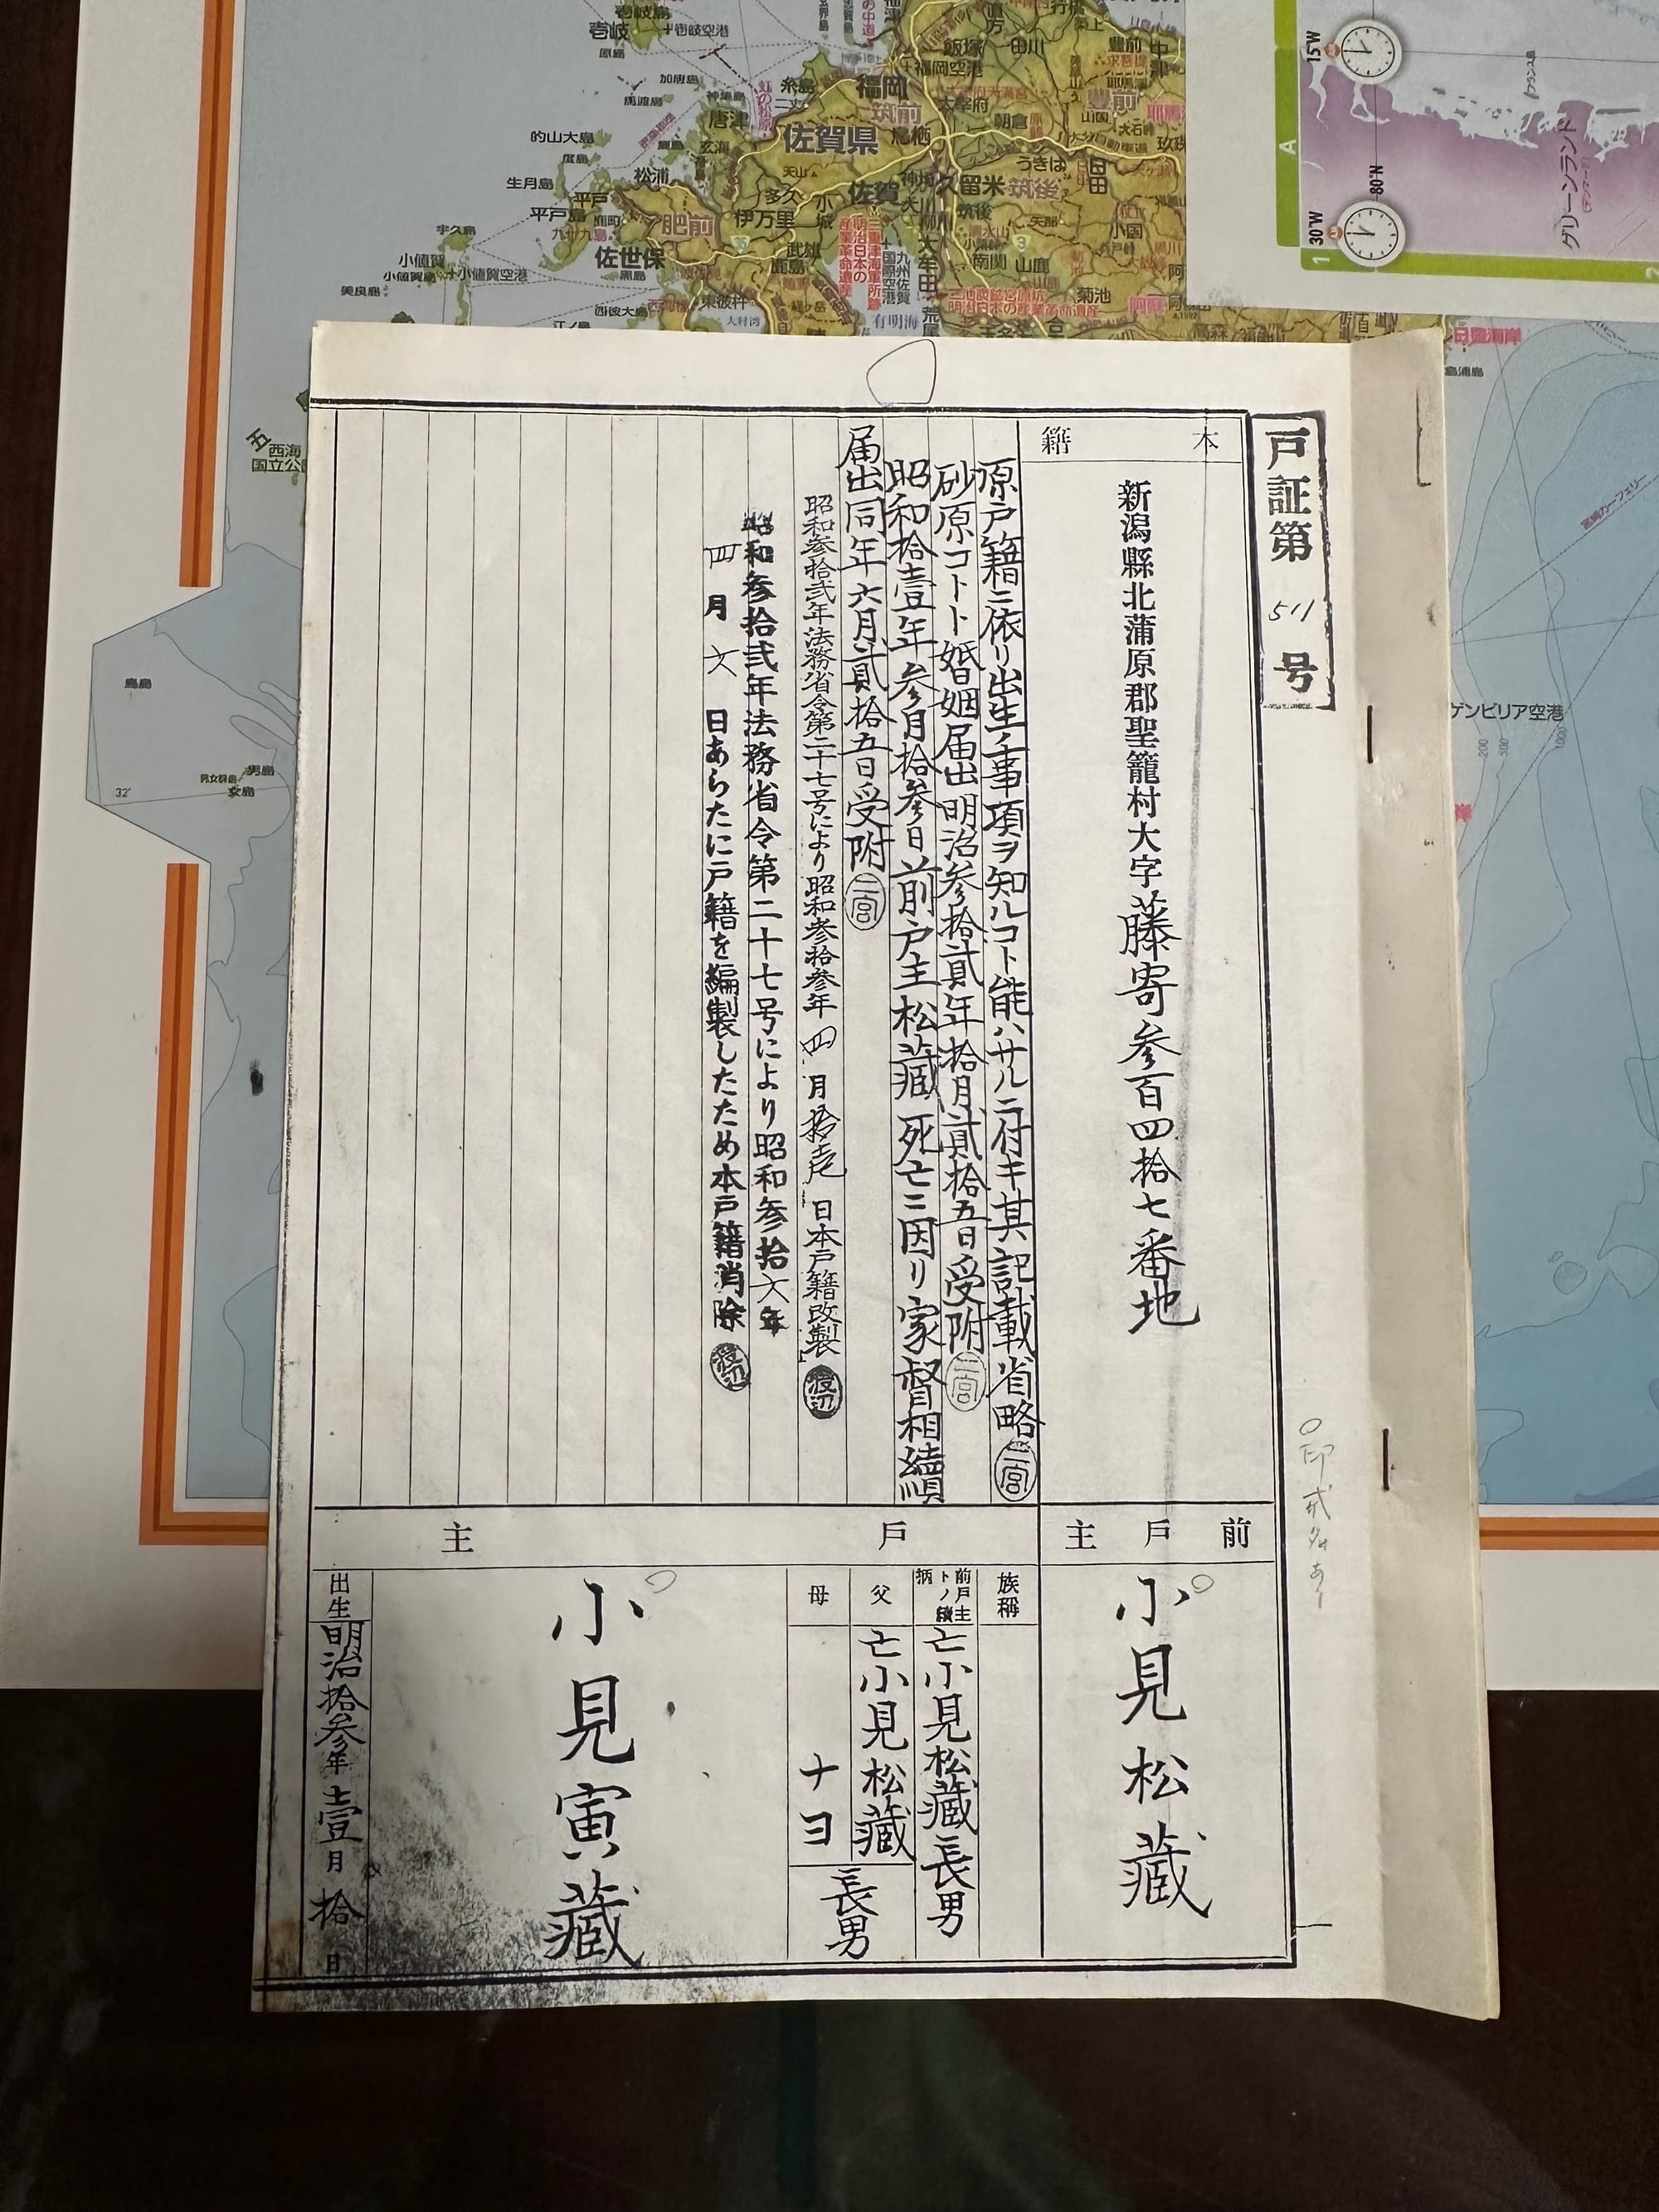 戸証第 511 号
本籍
新潟縣北蒲原郡聖籠村大字藤寄参百四拾七番地
原戸籍ニ依リ出生ノ事項ヲ知ルコト能ハサルニ付キ其記載省略 二宮
砂原コトト婚姻届出明治参拾貳年拾月貳拾五日受附 二宮
昭和拾壹年参月拾参日前戸主松藏死亡ニ因リ家督相續
届出同年六月貳拾五日受附 二宮
昭和参拾弐年法務省令第二十七号により昭和参拾参年四月拾壱日本戸籍改製 渡辺
昭和参拾弐年法務省令第二十七号により昭和参拾六年
四月六日あらたに戸籍を編製したため本戸籍消除 渡辺
前戸主
小見松藏
戸主
族稱
前戸主トノ續柄
亡小見松藏長男
父
亡小見松藏
母
ナヨ
長男
小見寅藏
出生
明治拾参年壹月拾日
福岡
筑前
佐賀県
佐賀
唐津
玄海
松浦
平戸
平戸島
生月島
的山大島
加唐島
馬渡島
壱岐島
壱岐
壱岐空港
糸島
二丈
福岡空港
飯塚
田川
直方
太宰府
朝倉
鳥栖
久留米
筑後
うきは
日田
豊前
中津
肥前
伊万里
多久
小城
武雄
鹿島
佐世保
九十九島
東彼杵
西彼大島
大村湾
有明海
大牟田
荒尾
南関
山鹿
菊池
小国
天山
宇久島
小値賀
小値賀島
小値賀空港
美良島
三重津海軍所跡
明治日本の
産業革命遺産
九州佐賀
国際空港
日豊海岸
島浦島
西海
国立公
五
鳥島
男島
男女群島
女島
32°
宮崎カーフェリー
ゲンビリア空港
200
500
1000
15°W
30°W
80°N
A
1
2
グリーンランド